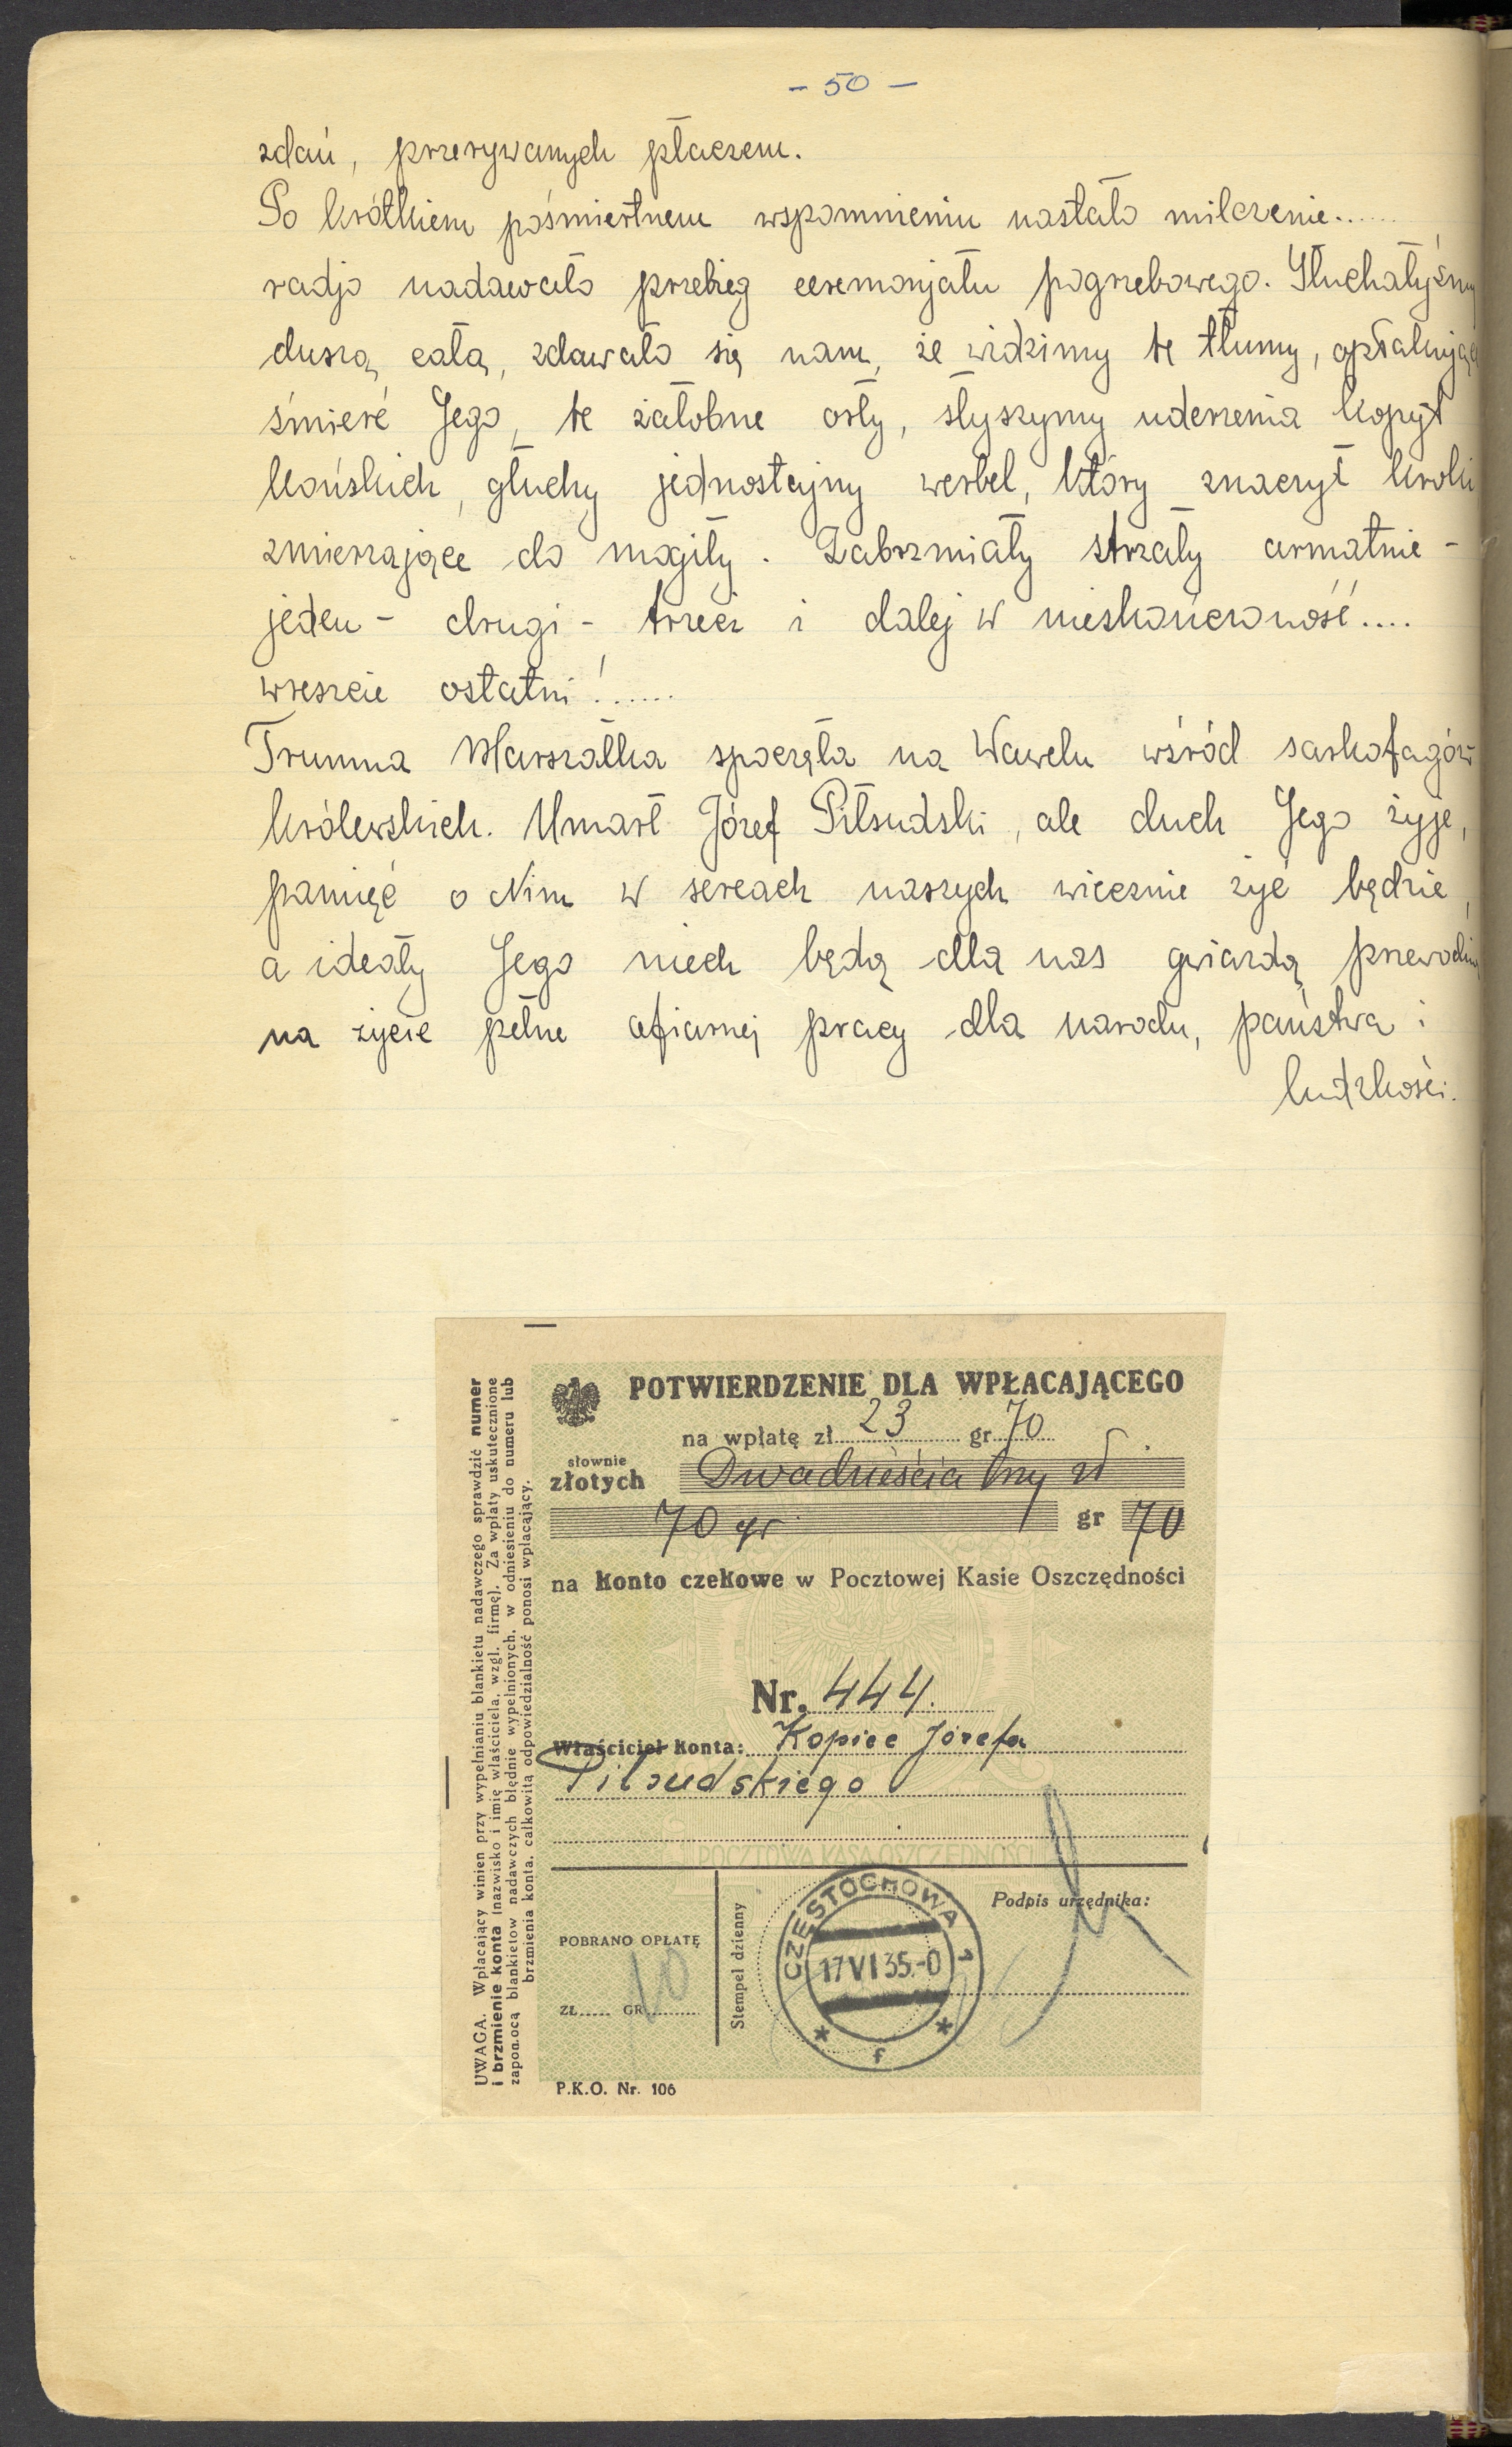 - 50 -
zdań, przerywanych płaczem.
Po krótkiem pośmiertnem wspomnieniu nastało milczenie......
radjo nadawało przebieg ceremonjału pogrzebowego. Słuchałyśmy
duszą całą, zdawało się nam, że widzimy te tłumy, opłakujące
śmierć Jego, te żałobne orły, słyszymy uderzenia kopyt
końskich, głuchy jednostajny werbel, który znaczył kroki
zmierzające do mogiły. Zabrzmiały strzały armatnie -
jeden - drugi - trzeci i dalej w nieskończoność....
wreszcie ostatni!......
Trumna Marszałka spoczęła na Wawelu wśród sarkofagów
królewskich. Umarł Józef Piłsudski, ale duch Jego żyje,
pamięć o Nim w sercach naszych wiecznie żyć będzie,
a ideały Jego niech będą dla nas gwiazdą przewodnią
na życie pełne ofiarnej pracy dla narodu, państwa i
ludzkości.
POTWIERDZENIE DLA WPŁACAJĄCEGO
na wpłatę zł 23 gr. 70
słownie
złotych Dwadzieścia trzy zł
70 gr gr 70
na konto czekowe w Pocztowej Kasie Oszczędności
Nr. 444.
Właściciel konta: Kopiec Józefa
Piłsudskiego
POCZTOWA KASA OSZCZĘDNOŚCI
POBRANO OPŁATĘ
ZŁ...... GR 10
Stempel dzienny
CZĘSTOCHOWA 1
17 VI 35.-0
* f *
Podpis urzędnika:
P.K.O. Nr. 106
UWAGA. Wpłacający winien przy wypełnianiu blankietu nadawczego sprawdzić numer
i brzmienie konta (nazwisko i imię właściciela, wzgl. firmę). Za wpłaty uskutecznione
zapomocą blankietów nadawczych błędnie wypełnionych, w odniesieniu do numeru lub
brzmienia konta, całkowitą odpowiedzialność ponosi wpłacający.